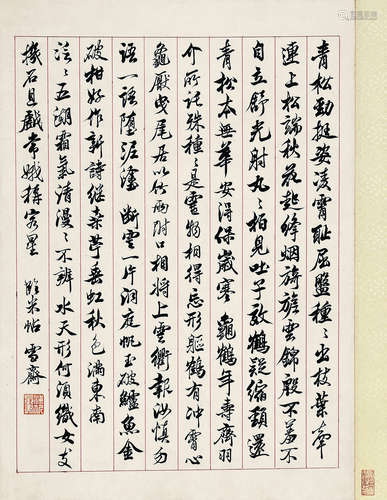 青松勁挺姿凌霄恥屈盤種々出枝葉牽
連上松端秋花起絳烟旖旎雲錦殷不羞不
自立舒光射丸々柏見吐子效鶴疑縮頸還
青松本無華安得保歲寒 龜鶴年壽齊羽
介所託殊種々是靈物相得忘形軀鶴有冲霄心
龜厭曳尾居以竹兩附口相將上雲衢報汝慎勿
語一語墮泥塗 斷雲一片洞庭帆玉破鱸魚金
破柑好作新詩繼桑苧垂虹秋色滿東南
泛々五湖霜氣清漫々不辨水天形何須織女支
機石且戲常娥稱客星 臨米帖 雪齋